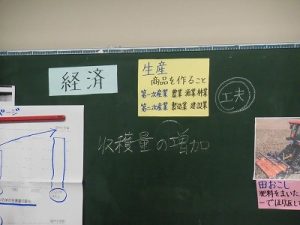 経済
生産
商品を作ること
第一次産業 農業 漁業 林業
第二次産業 製造業 建設業
工夫
収穫量の増加
田おこし
肥料をまいた